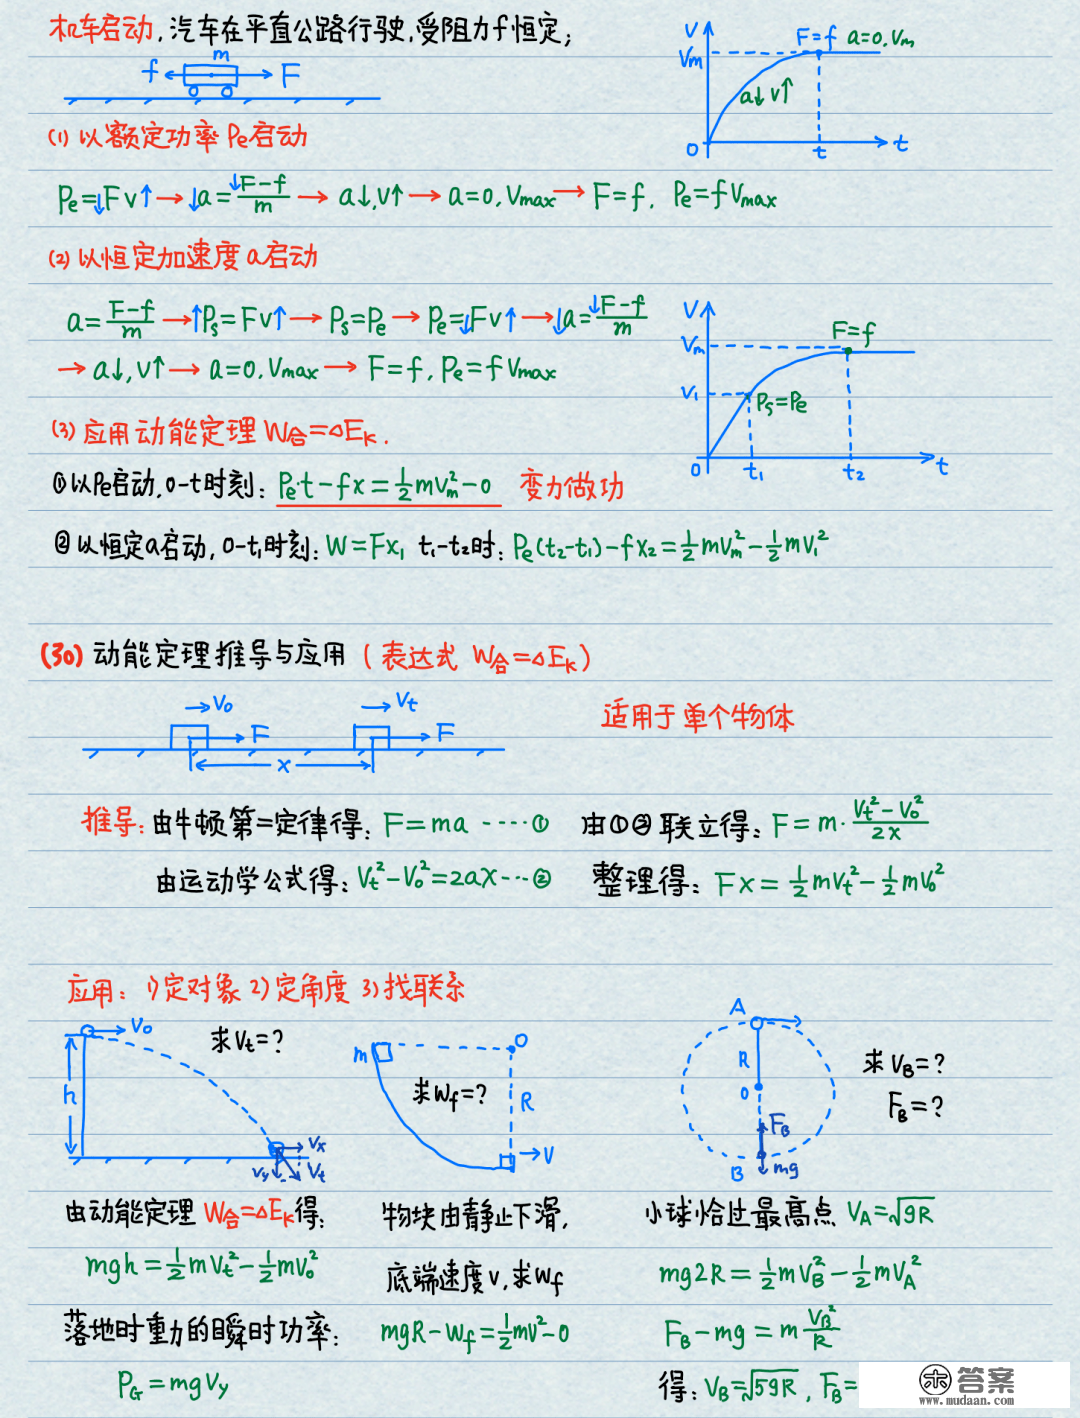 机车启动,汽车在平直公路行驶,受阻力f恒定;
m
f F
V
Vm
F=f a=0.Vm
a↓ v↑
0 t t
(1) 以额定功率 Pe启动
Pe=↓Fv↑→↓a=↓F-f/m→a↓,v↑→a=0,Vmax→F=f. Pe=fVmax
(2) 以恒定加速度a启动
a=F-f/m→↑Ps=Fv↑→Ps=Pe→Pe=↓Fv↑→↓a=↓F-f/m
→a↓,v↑→a=0.Vmax→F=f,Pe=fVmax
V
Vm
F=f
V₁
Ps=Pe
0 t₁ t₂ t
(3) 应用动能定理 W合=△Ek.
①以Pe启动,0-t时刻: Pe·t-fx=½mVm²-0 变力做功
②以恒定a启动,0-t₁时刻: W=Fx₁ t₁-t₂时: Pe(t₂-t₁)-fx₂=½mVm²-½mV₁²
(30) 动能定理推导与应用 (表达式 W合=△Ek)
V₀ Vt
F F
x
适用于单个物体
推导: 由牛顿第二定律得: F=ma ----① 由①②联立得: F=m·Vt²-V₀²/2x
由运动学公式得: Vt²-V₀²=2ax---② 整理得: Fx=½mVt²-½mV₀²
应用: 1)定对象 2)定角度 3)找联系
V₀
求Vt=?
h
Vx
Vy Vt
m O
求Wf=?
R
V
A
R
0
FB
B mg
求VB=?
FB=?
由动能定理 W合=△Ek得:
mgh=½mVt²-½mV₀²
落地时重力的瞬时功率:
PG=mgVy
物块由静止下滑,
底端速度v,求Wf
mgR-Wf=½mv²-0
小球恰过最高点 VA=√gR
mg2R=½mVB²-½mVA²
FB-mg=mVB²/R
得: VB=√5gR, FB=
答案
www.mudaan.com